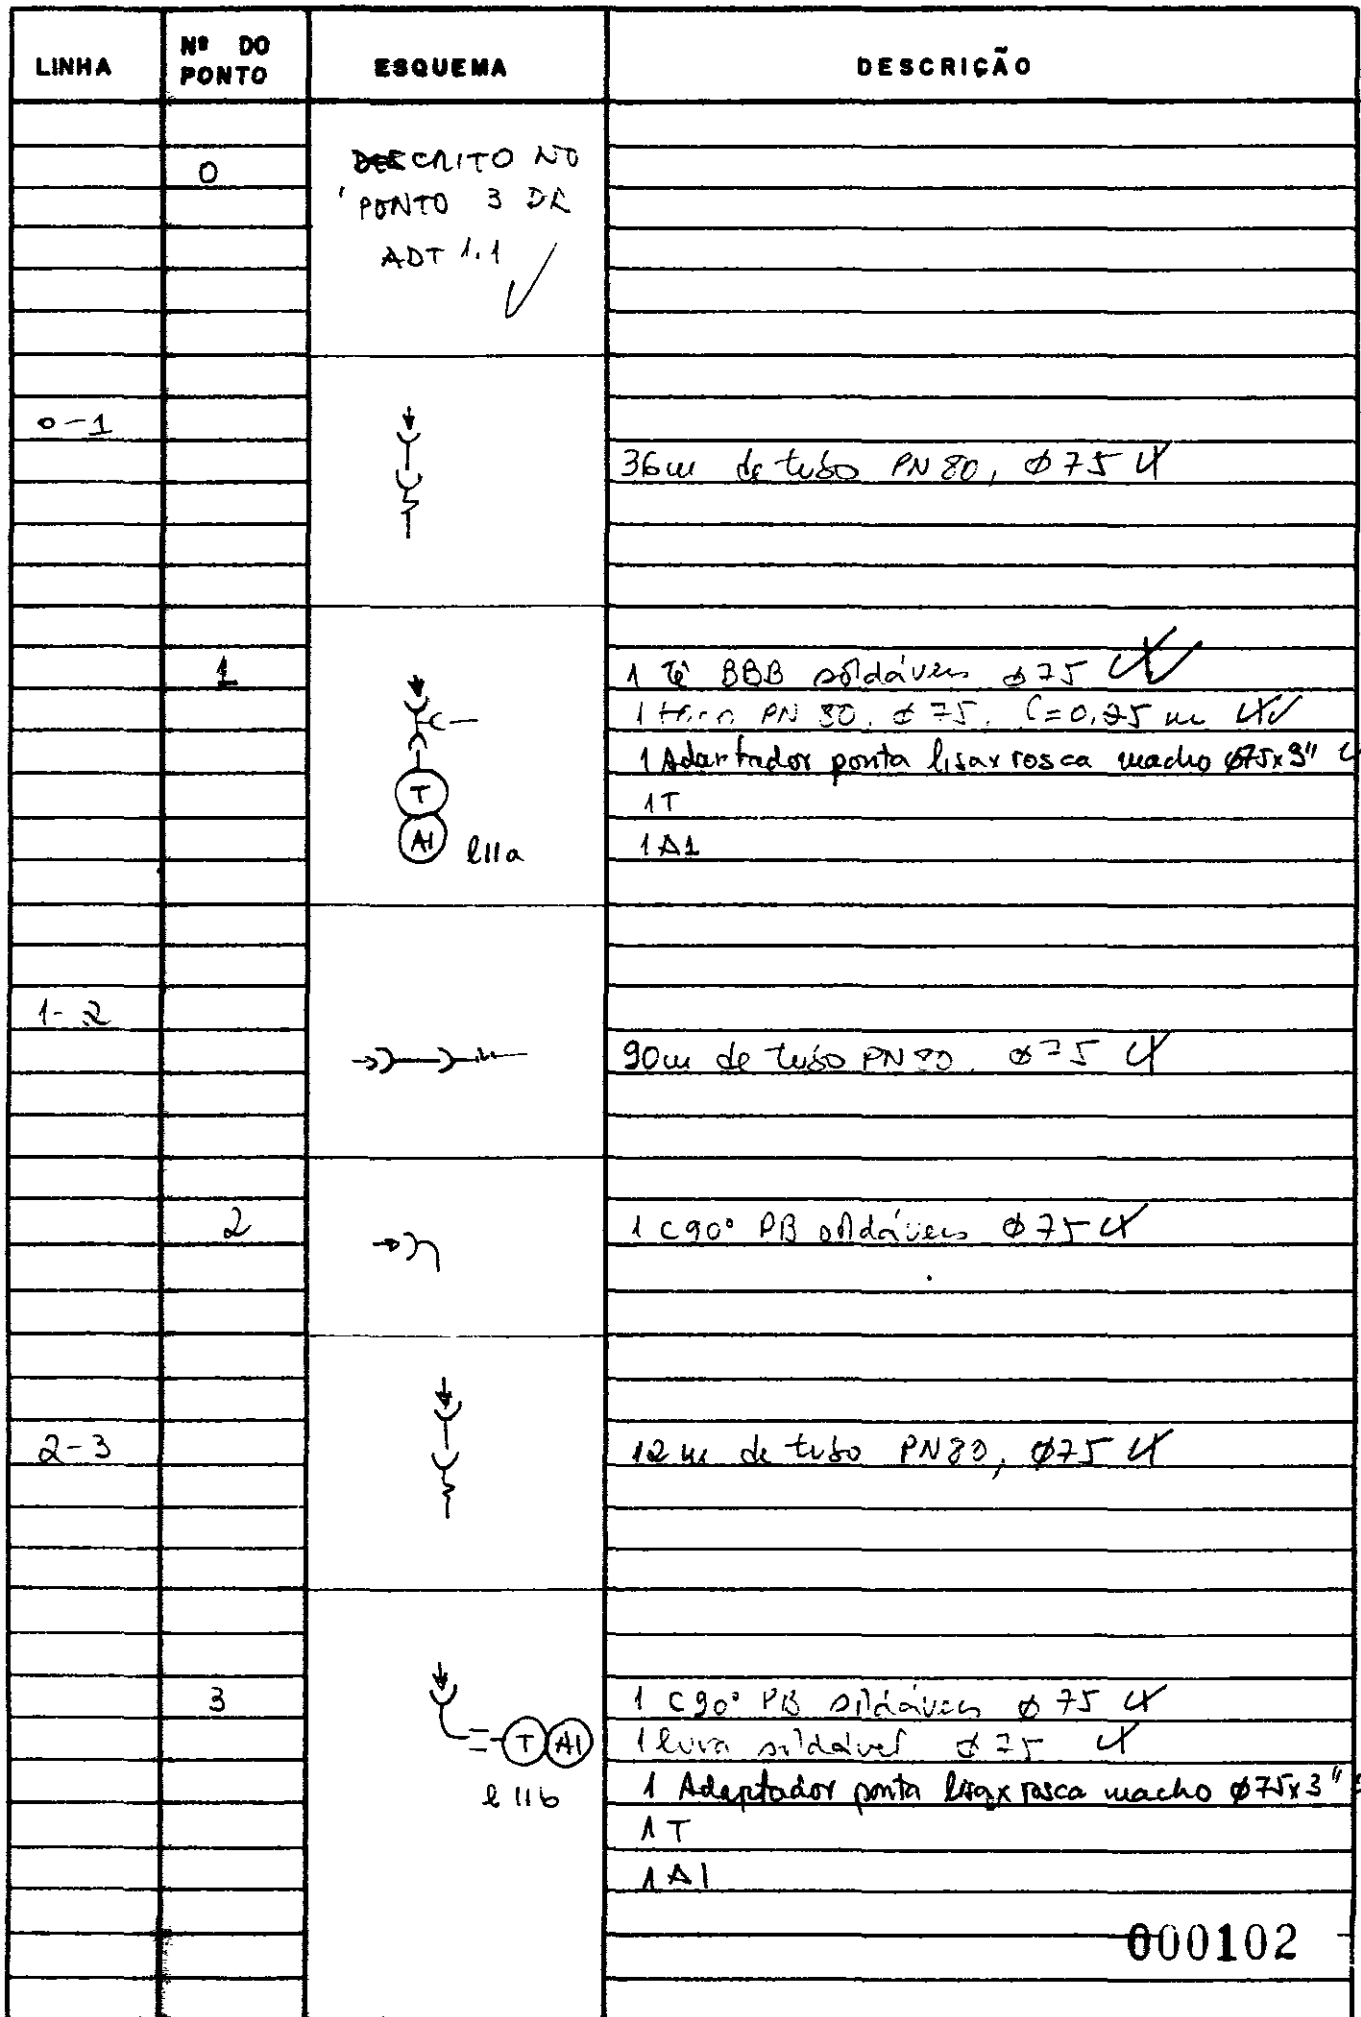 LINHA Nº DO PONTO ESQUEMA DESCRIÇÃO
0 DESCRITO NO
PONTO 3 DA
ADT 1.1
0-1
36m de tubo PN 80, ø 75
1 1 Tê BBB soldáveis ø 75
1 PN 80, ø 75, C=0,25 m
1 Adaptador ponta lisa x rosca macho ø75x3"
T 1T
A1 l11a 1A1
1-2
90m de tubo PN80, ø75
2 1 C90° PB soldáveis ø 75
2-3 12 m de tubo PN80, ø75
3 1 C90° PB soldáveis ø 75
T A1 1 luva soldável ø 75
l 11b 1 Adaptador ponta lisa x rosca macho ø75x3"
1T
1A1
000102